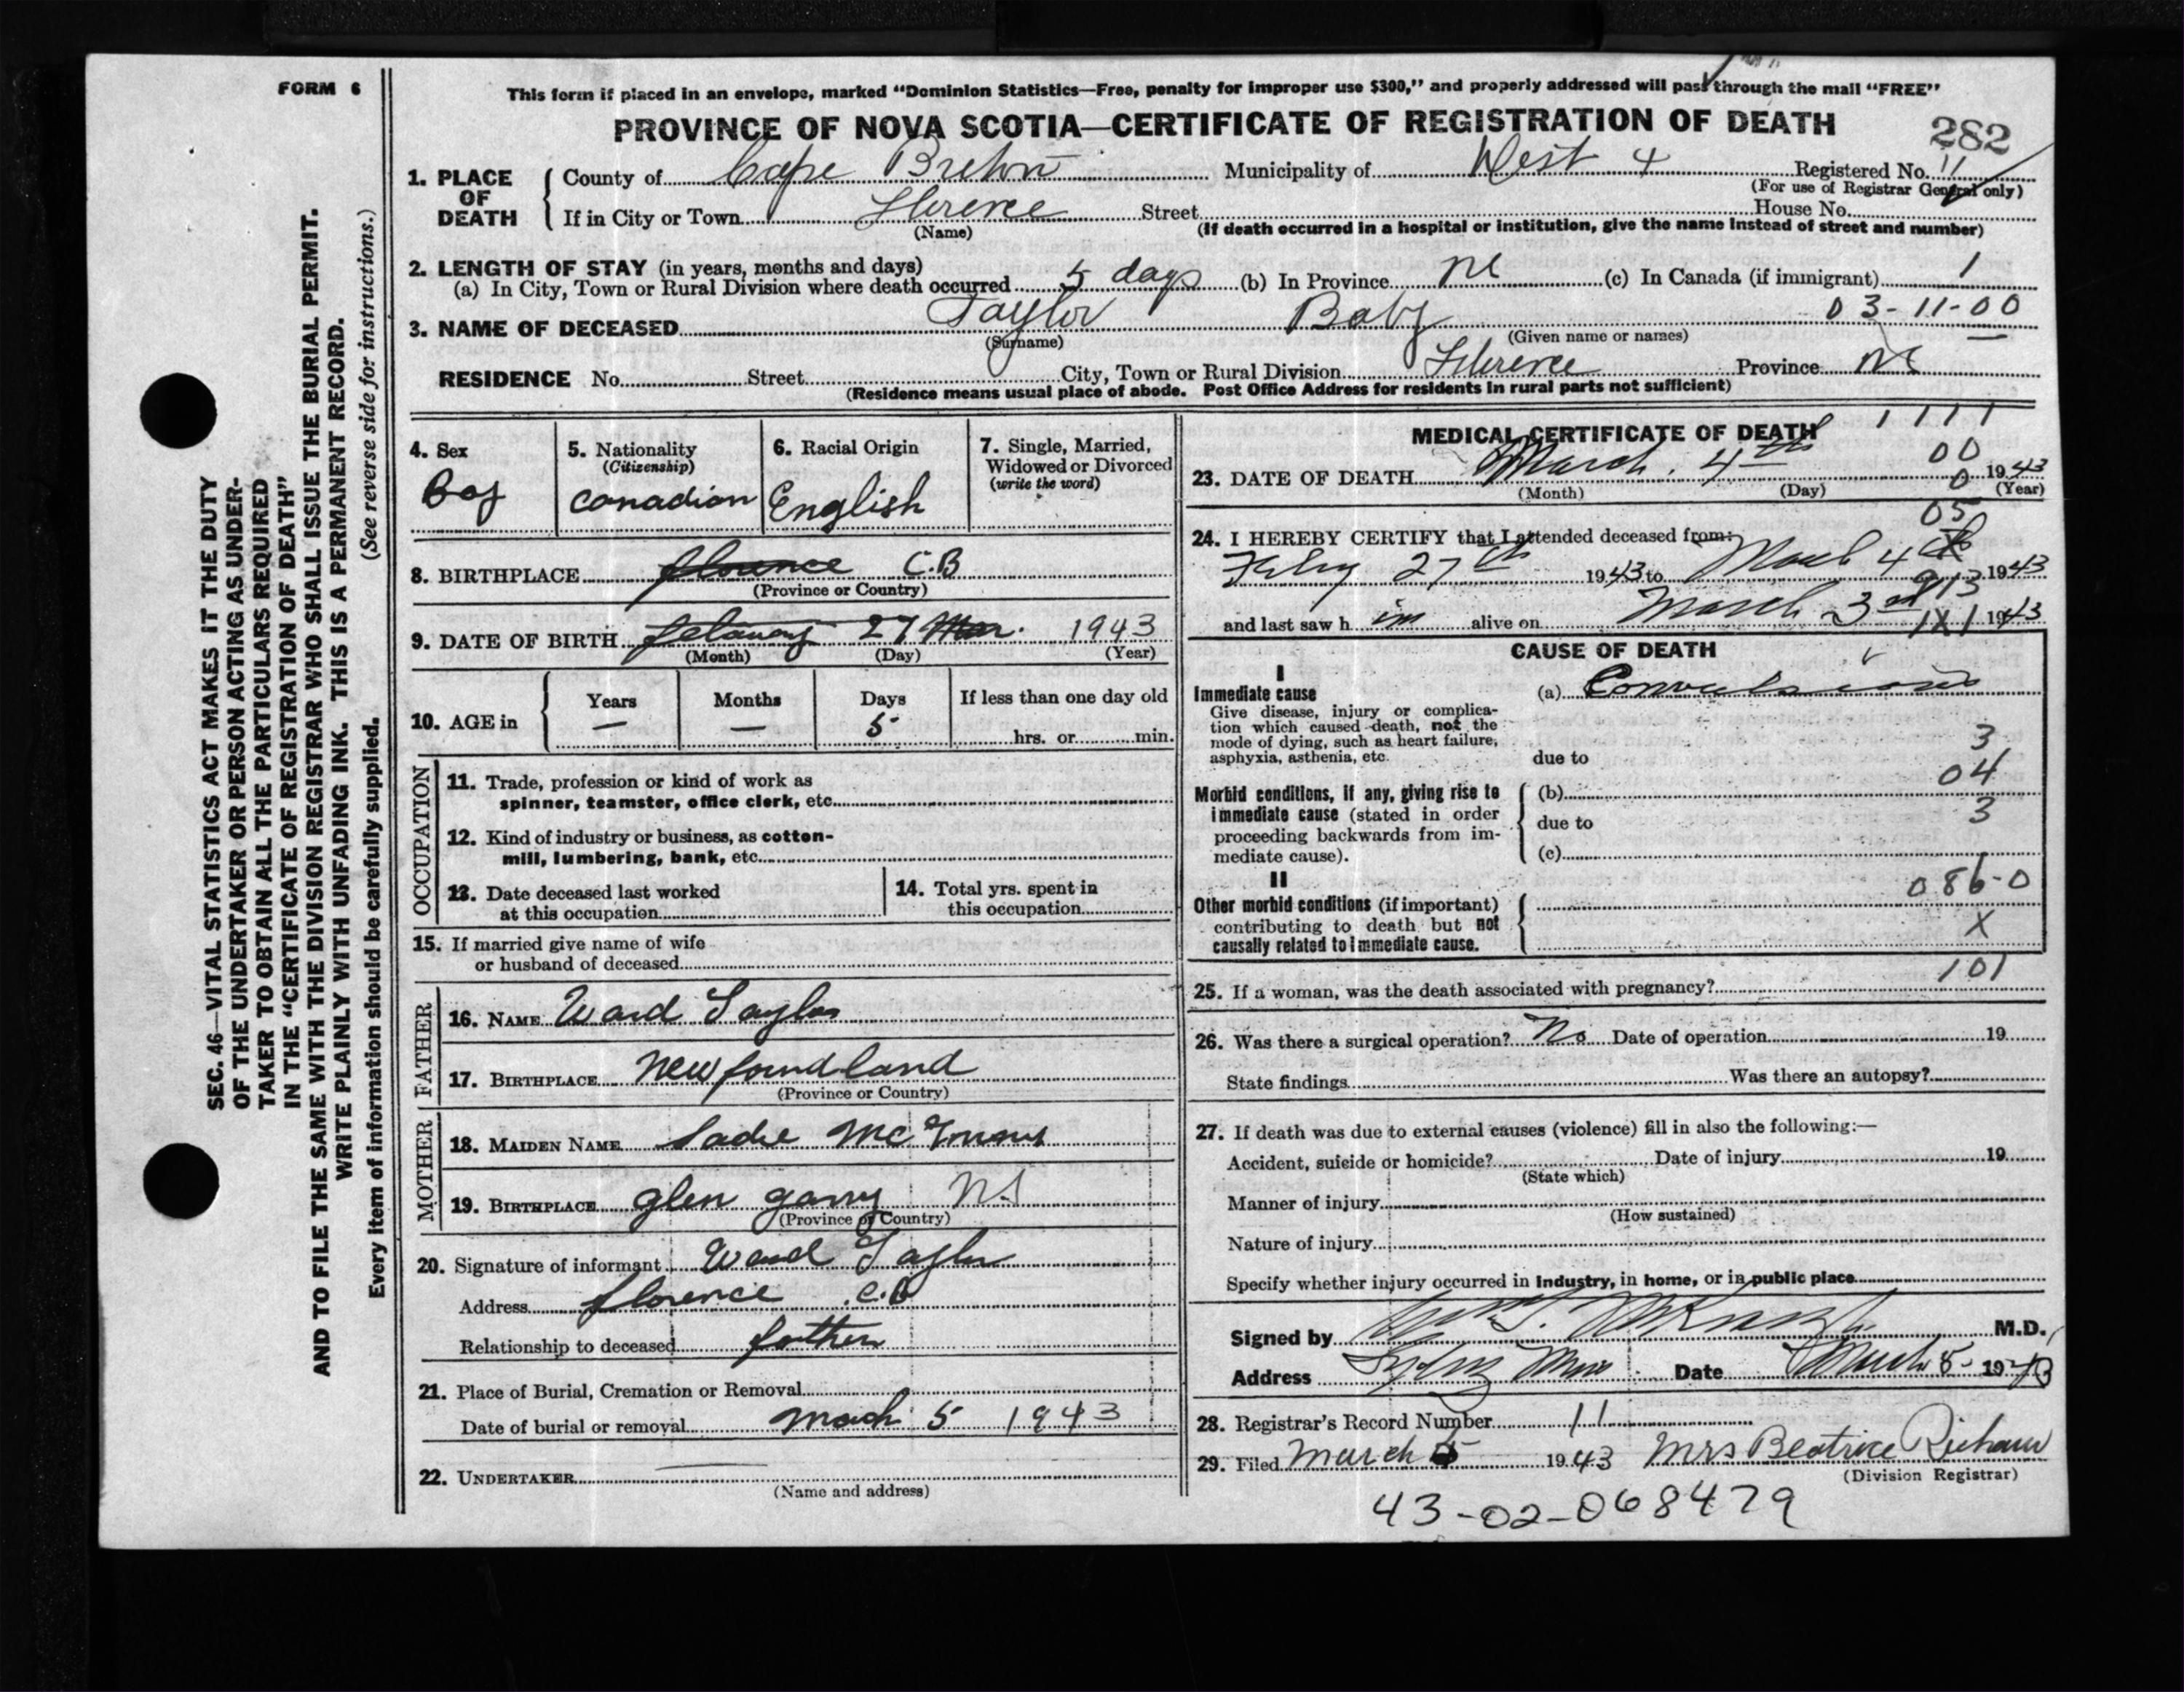 FORM 6
This form if placed in an envelope, marked “Dominion Statistics—Free, penalty for improper use $300,” and properly addressed will pass through the mail “FREE”
PROVINCE OF NOVA SCOTIA—CERTIFICATE OF REGISTRATION OF DEATH
282
1. PLACE OF DEATH
County of Cape Breton Municipality of West 4 Registered No. 11
(For use of Registrar General only)
If in City or Town Florence Street House No.
(Name) (If death occurred in a hospital or institution, give the name instead of street and number)
2. LENGTH OF STAY (in years, months and days)
(a) In City, Town or Rural Division where death occurred 5 days (b) In Province (c) In Canada (if immigrant) 1
03-11-00
3. NAME OF DECEASED Taylor Baby
(Surname) (Given name or names)
RESIDENCE No. Street City, Town or Rural Division Florence Province NS
(Residence means usual place of abode. Post Office Address for residents in rural parts not sufficient)
4. Sex
Boy
5. Nationality
(Citizenship)
Canadian
6. Racial Origin
English
7. Single, Married,
Widowed or Divorced
(write the word)
8. BIRTHPLACE florence C.B
(Province or Country)
9. DATE OF BIRTH 27 Mar. 1943
(Month) (Day) (Year)
10. AGE in
Years —
Months —
Days 5
If less than one day old
hrs. or min.
OCCUPATION
11. Trade, profession or kind of work as
spinner, teamster, office clerk, etc.
12. Kind of industry or business, as cotton-
mill, lumbering, bank, etc.
13. Date deceased last worked
at this occupation
14. Total yrs. spent in
this occupation
15. If married give name of wife
or husband of deceased
FATHER
16. NAME Ward Taylor
17. BIRTHPLACE Newfoundland
(Province or Country)
MOTHER
18. MAIDEN NAME Sadie Mc
19. BIRTHPLACE glen garry NS
(Province or Country)
20. Signature of informant Ward Taylor
Address florence C.B
Relationship to deceased father
21. Place of Burial, Cremation or Removal
Date of burial or removal March 5 1943
22. UNDERTAKER —
(Name and address)
MEDICAL CERTIFICATE OF DEATH
1111
00
0
23. DATE OF DEATH March 4th 1943
(Month) (Day) (Year)
05
24. I HEREBY CERTIFY that I attended deceased from:
27th 1943 to March 4th 1943
and last saw him alive on March 3rd 1943
CAUSE OF DEATH
I
Immediate cause
Give disease, injury or complica-
tion which caused death, not the
mode of dying, such as heart failure,
asphyxia, asthenia, etc.
(a) Convulsions
due to
3
04
Morbid conditions, if any, giving rise to
immediate cause (stated in order
proceeding backwards from im-
mediate cause).
(b)
due to
3
(c)
II
Other morbid conditions (if important)
contributing to death but not
causally related to immediate cause.
086-0
X
101
25. If a woman, was the death associated with pregnancy?
26. Was there a surgical operation? No Date of operation 19
State findings Was there an autopsy?
27. If death was due to external causes (violence) fill in also the following:—
Accident, suicide or homicide? Date of injury 19
(State which)
Manner of injury
(How sustained)
Nature of injury
Specify whether injury occurred in industry, in home, or in public place
Signed by M.D.
Address Sydney Mines Date March 5 1943
28. Registrar's Record Number 11
29. Filed March 5 1943 Mrs Beatrice
(Division Registrar)
43-02-068479
SEC. 46—VITAL STATISTICS ACT MAKES IT THE DUTY
OF THE UNDERTAKER OR PERSON ACTING AS UNDER-
TAKER TO OBTAIN ALL THE PARTICULARS REQUIRED
IN THE “CERTIFICATE OF REGISTRATION OF DEATH”
AND TO FILE THE SAME WITH THE DIVISION REGISTRAR WHO SHALL ISSUE THE BURIAL PERMIT.
WRITE PLAINLY WITH UNFADING INK. THIS IS A PERMANENT RECORD.
Every item of information should be carefully supplied. (See reverse side for instructions.)